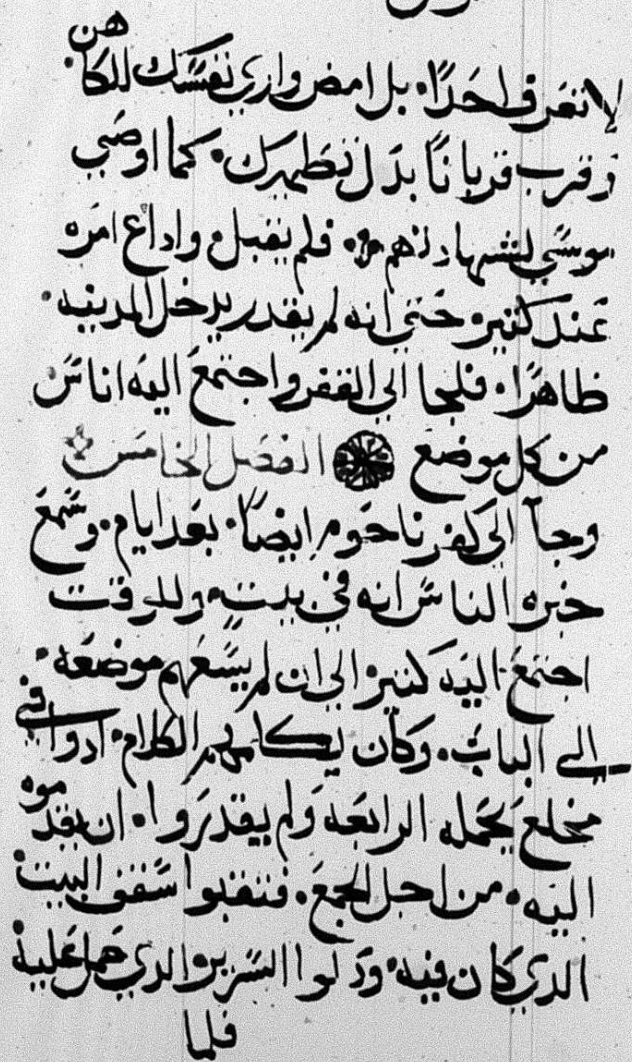 لا تعرف احدًا. بل امض واري نفسك للكاهن
وقرب قربانًا بدل تطهيرك. كما اوصي
موسي لشهادتهم. فلم يقبل. واداع امره
عند كتير. حتي انه لم يقدر يدخل المدينه.
ظاهرًا. فلجا الي القفر واجتمع اليه اناس
من كل موضع الفصل الخامس
وجآ الي كفرناحوم ايضًا. بعد ايام. وسمع
خبره الناس انه في بيته. وللوقت
اجتمع اليه كتير. الي ان لم يسعهم موضعه.
الي الباب. وكان يكلمهم الكلام. ادوا في
مخلع يحمله الرابعه ولم يقدروا. ان يقدموه
اليه. من اجل الجمع. فنقبوا سقف البيت
الدي كان فيه. ودلوا السرير. الدي حمل عليه
فلما